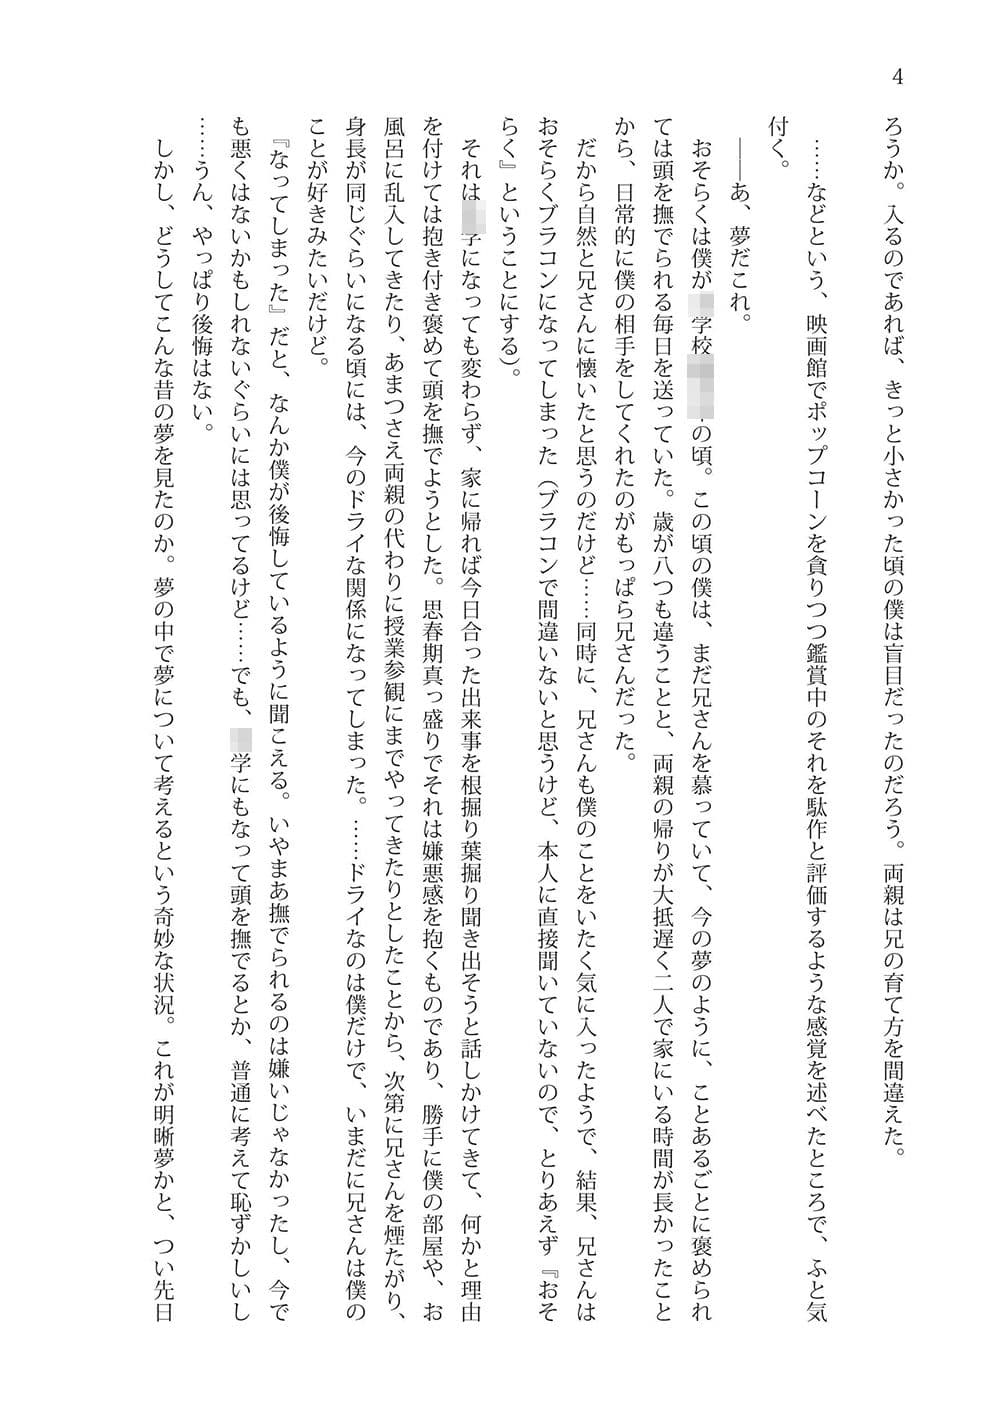 4
ろうか。入るのであれば、きっと小さかった頃の僕は盲目だったのだろう。両親は兄の育て方を間違えた。
……などという、映画館でポップコーンを貪りつつ鑑賞中のそれを駄作と評価するような感覚を述べたところで、ふと気
付く。
――あ、夢だこれ。
おそらくは僕が学校の頃。この頃の僕は、まだ兄さんを慕っていて、今の夢のように、ことあるごとに褒められ
ては頭を撫でられる毎日を送っていた。歳が八つも違うことと、両親の帰りが大抵遅く二人で家にいる時間が長かったこと
から、日常的に僕の相手をしてくれたのがもっぱら兄さんだった。
だから自然と兄さんに懐いたと思うのだけど……同時に、兄さんも僕のことをいたく気に入ったようで、結果、兄さんは
おそらくブラコンになってしまった（ブラコンで間違いないと思うけど、本人に直接聞いていないので、とりあえず『おそ
らく』ということにする）。
それは学になっても変わらず、家に帰れば今日合った出来事を根掘り葉掘り聞き出そうと話しかけてきて、何かと理由
を付けては抱き付き褒めて頭を撫でようとした。思春期真っ盛りでそれは嫌悪感を抱くものであり、勝手に僕の部屋や、お
風呂に乱入してきたり、あまつさえ両親の代わりに授業参観にまでやってきたりとしたことから、次第に兄さんを煙たがり、
身長が同じぐらいになる頃には、今のドライな関係になってしまった。……ドライなのは僕だけで、いまだに兄さんは僕の
ことが好きみたいだけど。
『なってしまった』だと、なんか僕が後悔しているように聞こえる。いやまあ撫でられるのは嫌いじゃなかったし、今で
も悪くはないかもしれないぐらいには思ってるけど……でも、学にもなって頭を撫でるとか、普通に考えて恥ずかしいし
……うん、やっぱり後悔はない。
しかし、どうしてこんな昔の夢を見たのか。夢の中で夢について考えるという奇妙な状況。これが明晰夢かと、つい先日